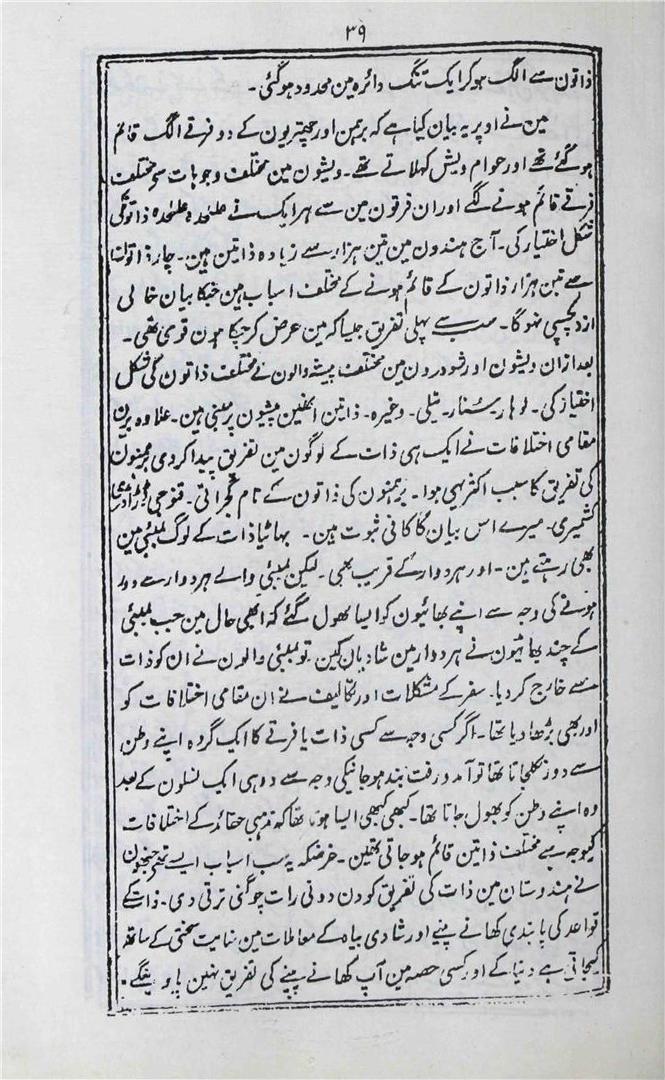 ۳۹
ذاتون سے الگ ہوکر ایک تنگ دائرہ مین محدود ہوگئی ۔
مین نے اوپر یہ بیان کیا ہے کہ برہمن اور چھتریون کے دو فرقے الگ قائم
ہوگئے تھے اور عوام ویش کہلاتے تھے ۔ ویشون مین مختلف وجوہات سے مختلف
فرقے قائم ہونے لگے اور ان فرقون مین سے ہر ایک نے علٰحدہ علٰحدہ ذاتونکی
شکل اختیار کی ۔ آج ہندون مین تین ہزار سے زیادہ ذاتین ہین ۔ چار ذاتونسے
سے تین ہزار ذاتون کے قائم ہونے کے مختلف اسباب ہین جنکا بیان خالی
از دلچسپی نہوگا ۔ سب سے پہلی تفریق جیسا کہ مین عرض کرچکا ہون قومی تھی ۔
بعد ازان ویشون اور شودرون مین مختلف پیشہ والون نے مختلف ذاتون کی شکل
اختیار کی ۔ لوہار ۔ سنار ۔ تیلی ۔ وغیرہ ۔ ذاتین انھین پیشون پر مبنی ہین ۔ علاوہ برین
مقامی اختلافات نے ایک ہی ذات کے لوگون مین تفریق پیدا کردی برہمنون
کی تفریق کا سبب اکثر یہی ہوا ۔ برہمنون کی ذاتون کے نام گجراتی ۔ قنوجی
کشمیری ۔ میرے اس بیان کا کافی ثبوت ہین ۔ بھاٹیا ذات کے لوگ بمبئی مین
بھی رہتے ہین ۔ اور ہردوار کے قریب بھی ۔ لیکن بمبئی والے ہردوار سے دور
ہونے کی وجہ سے اپنے بھائیون کو ایسا بھول گئے کہ ابھی حال مین جب بمبئی
کے چند بھائیون نے ہردوار مین شادیان کین ۔ تو بمبئی والون نے ان کو ذات
سے خارج کردیا ۔ سفر کے مشکلات اور تکالیف نے ان مقامی اختلافات کو
اور بھی بڑھا دیا تھا ۔ اگر کسی وجہ سے کسی ذات یا فرقے کا ایک گروہ اپنے وطن
سے دور نکلجاتا تھا تو آمد و رفت بند ہوجانیکی وجہ سے دو ہی ایک نسلون کے بعد
وہ اپنے وطن کو بھول جاتا تھا ۔ کبھی کبھی ایسا ہوتا تھا کہ مذہبی عقائد کے اختلافات
کیوجہ سے مختلف ذاتین قائم ہوجاتی تھین ۔ غرضکہ یہ سب اسباب ایسے تھے جنھون
نے ہندوستان مین ذات کی تفریق کو دن دونی رات چوگنی ترقی دی ۔ ذات کے
قواعد کی پابندی کھانے پینے اور شادی بیاہ کے معاملات مین نہایت سختی کے ساتھ
کیجاتی ہے دنیا کے اور کسی حصہ مین آپ کھانے پینے کی تفریق نہین پاوینگے ۔